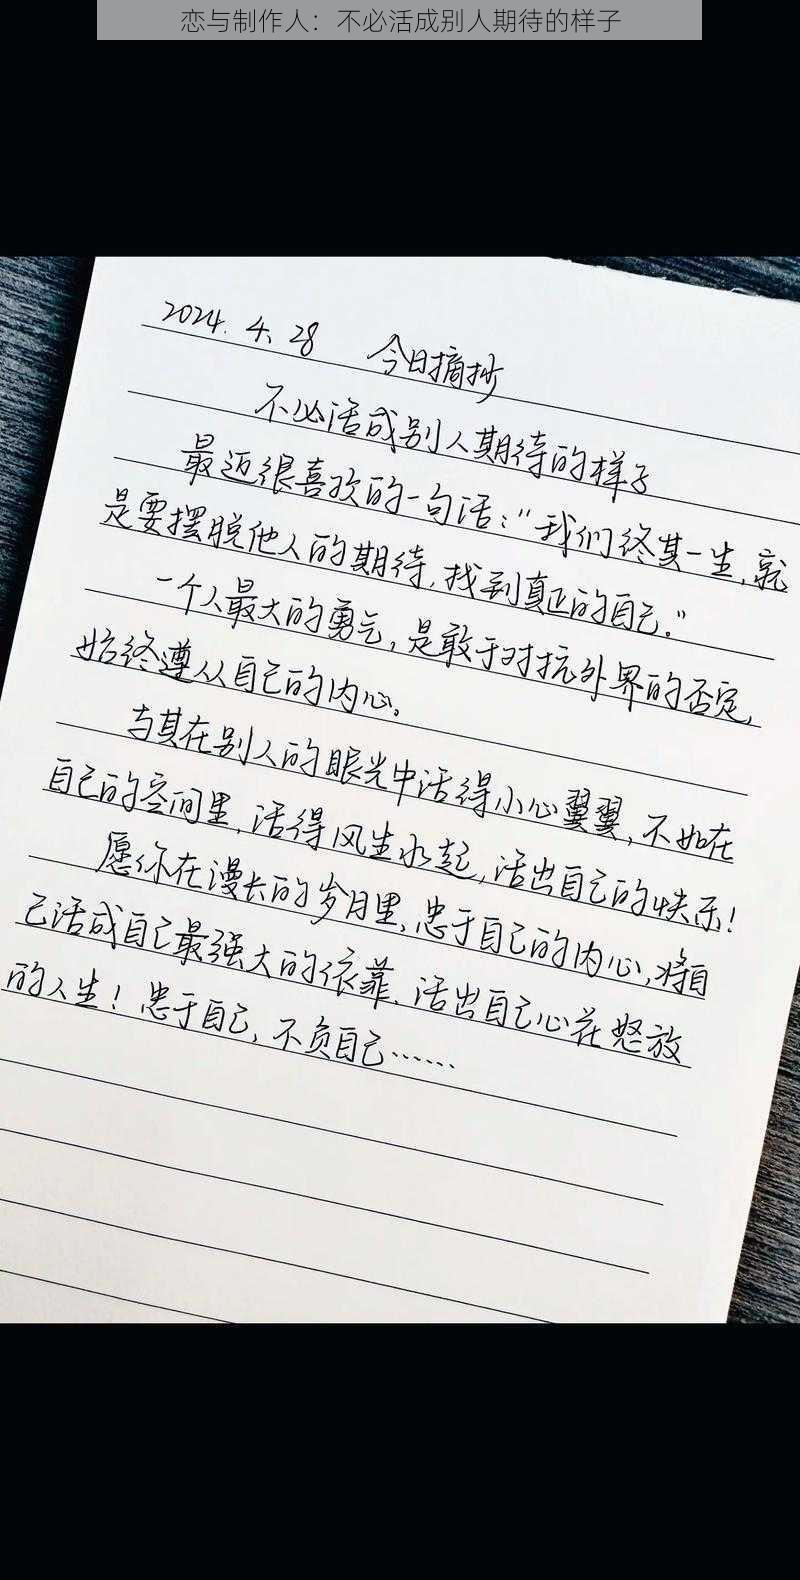 恋与制作人：不必活成别人期待的样子
2024.4.28 今日摘抄
不必活成别人期待的样子
最近很喜欢的一句话：“我们终其一生，就
是要摆脱他人的期待，找到真正的自己。”
一个人最大的勇气，是敢于对抗外界的否定，
始终遵从自己的内心。
与其在别人的眼光中活得小心翼翼，不如在
自己的空间里，活得风生水起，活出自己的快乐！
愿你在漫长的岁月里，忠于自己的内心，将自
己活成自己最强大的依靠，活出自己心花怒放
的人生！忠于自己，不负自己……